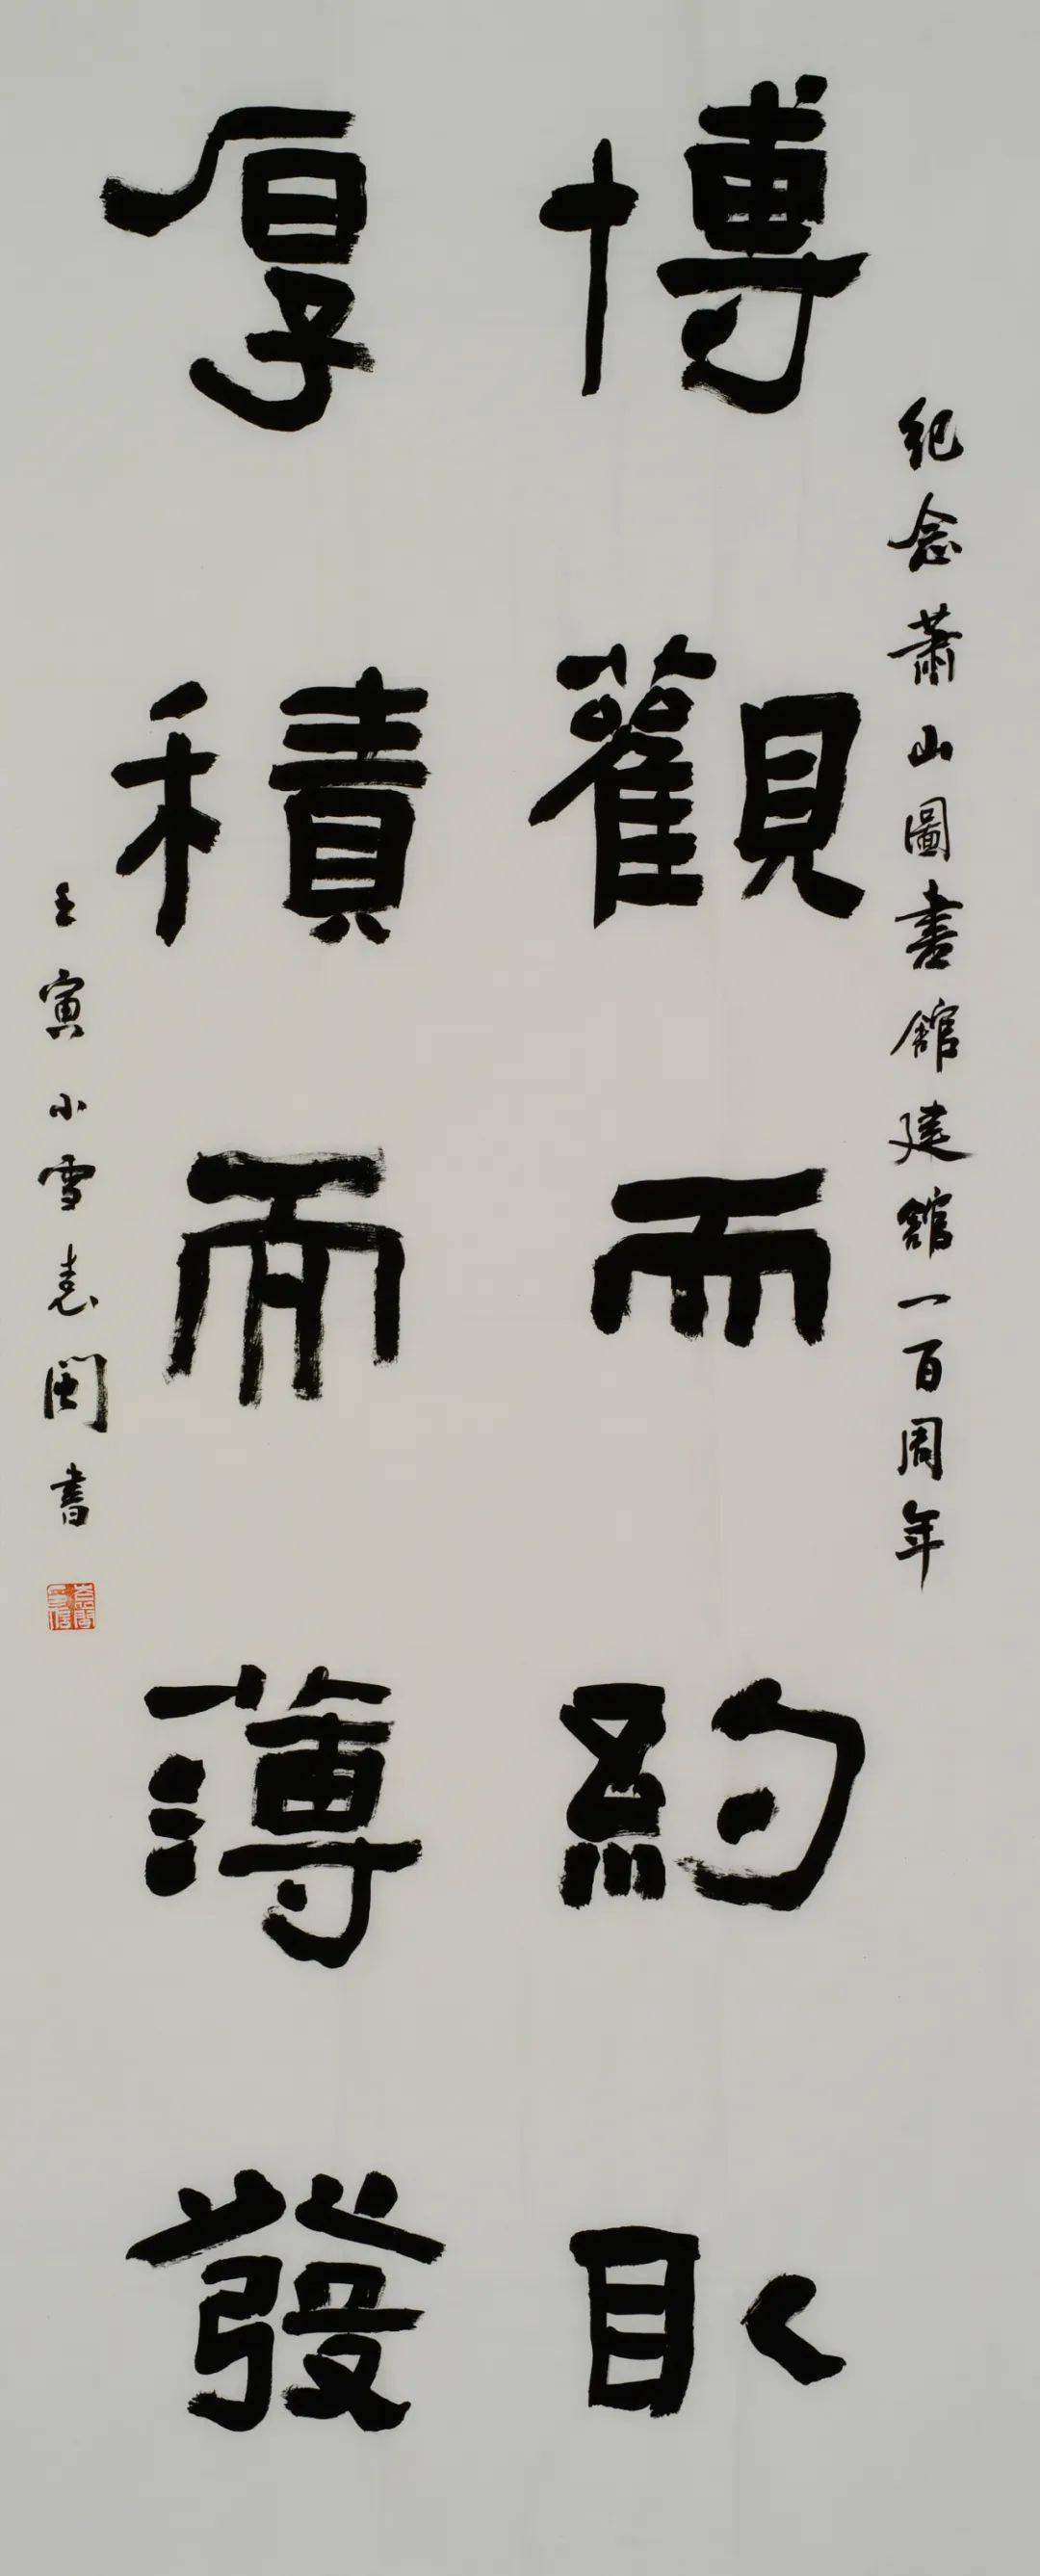 紀念蕭山圖書舘建舘一百周年
博觀而約取
厚積而薄發
壬寅小雪袁閩書